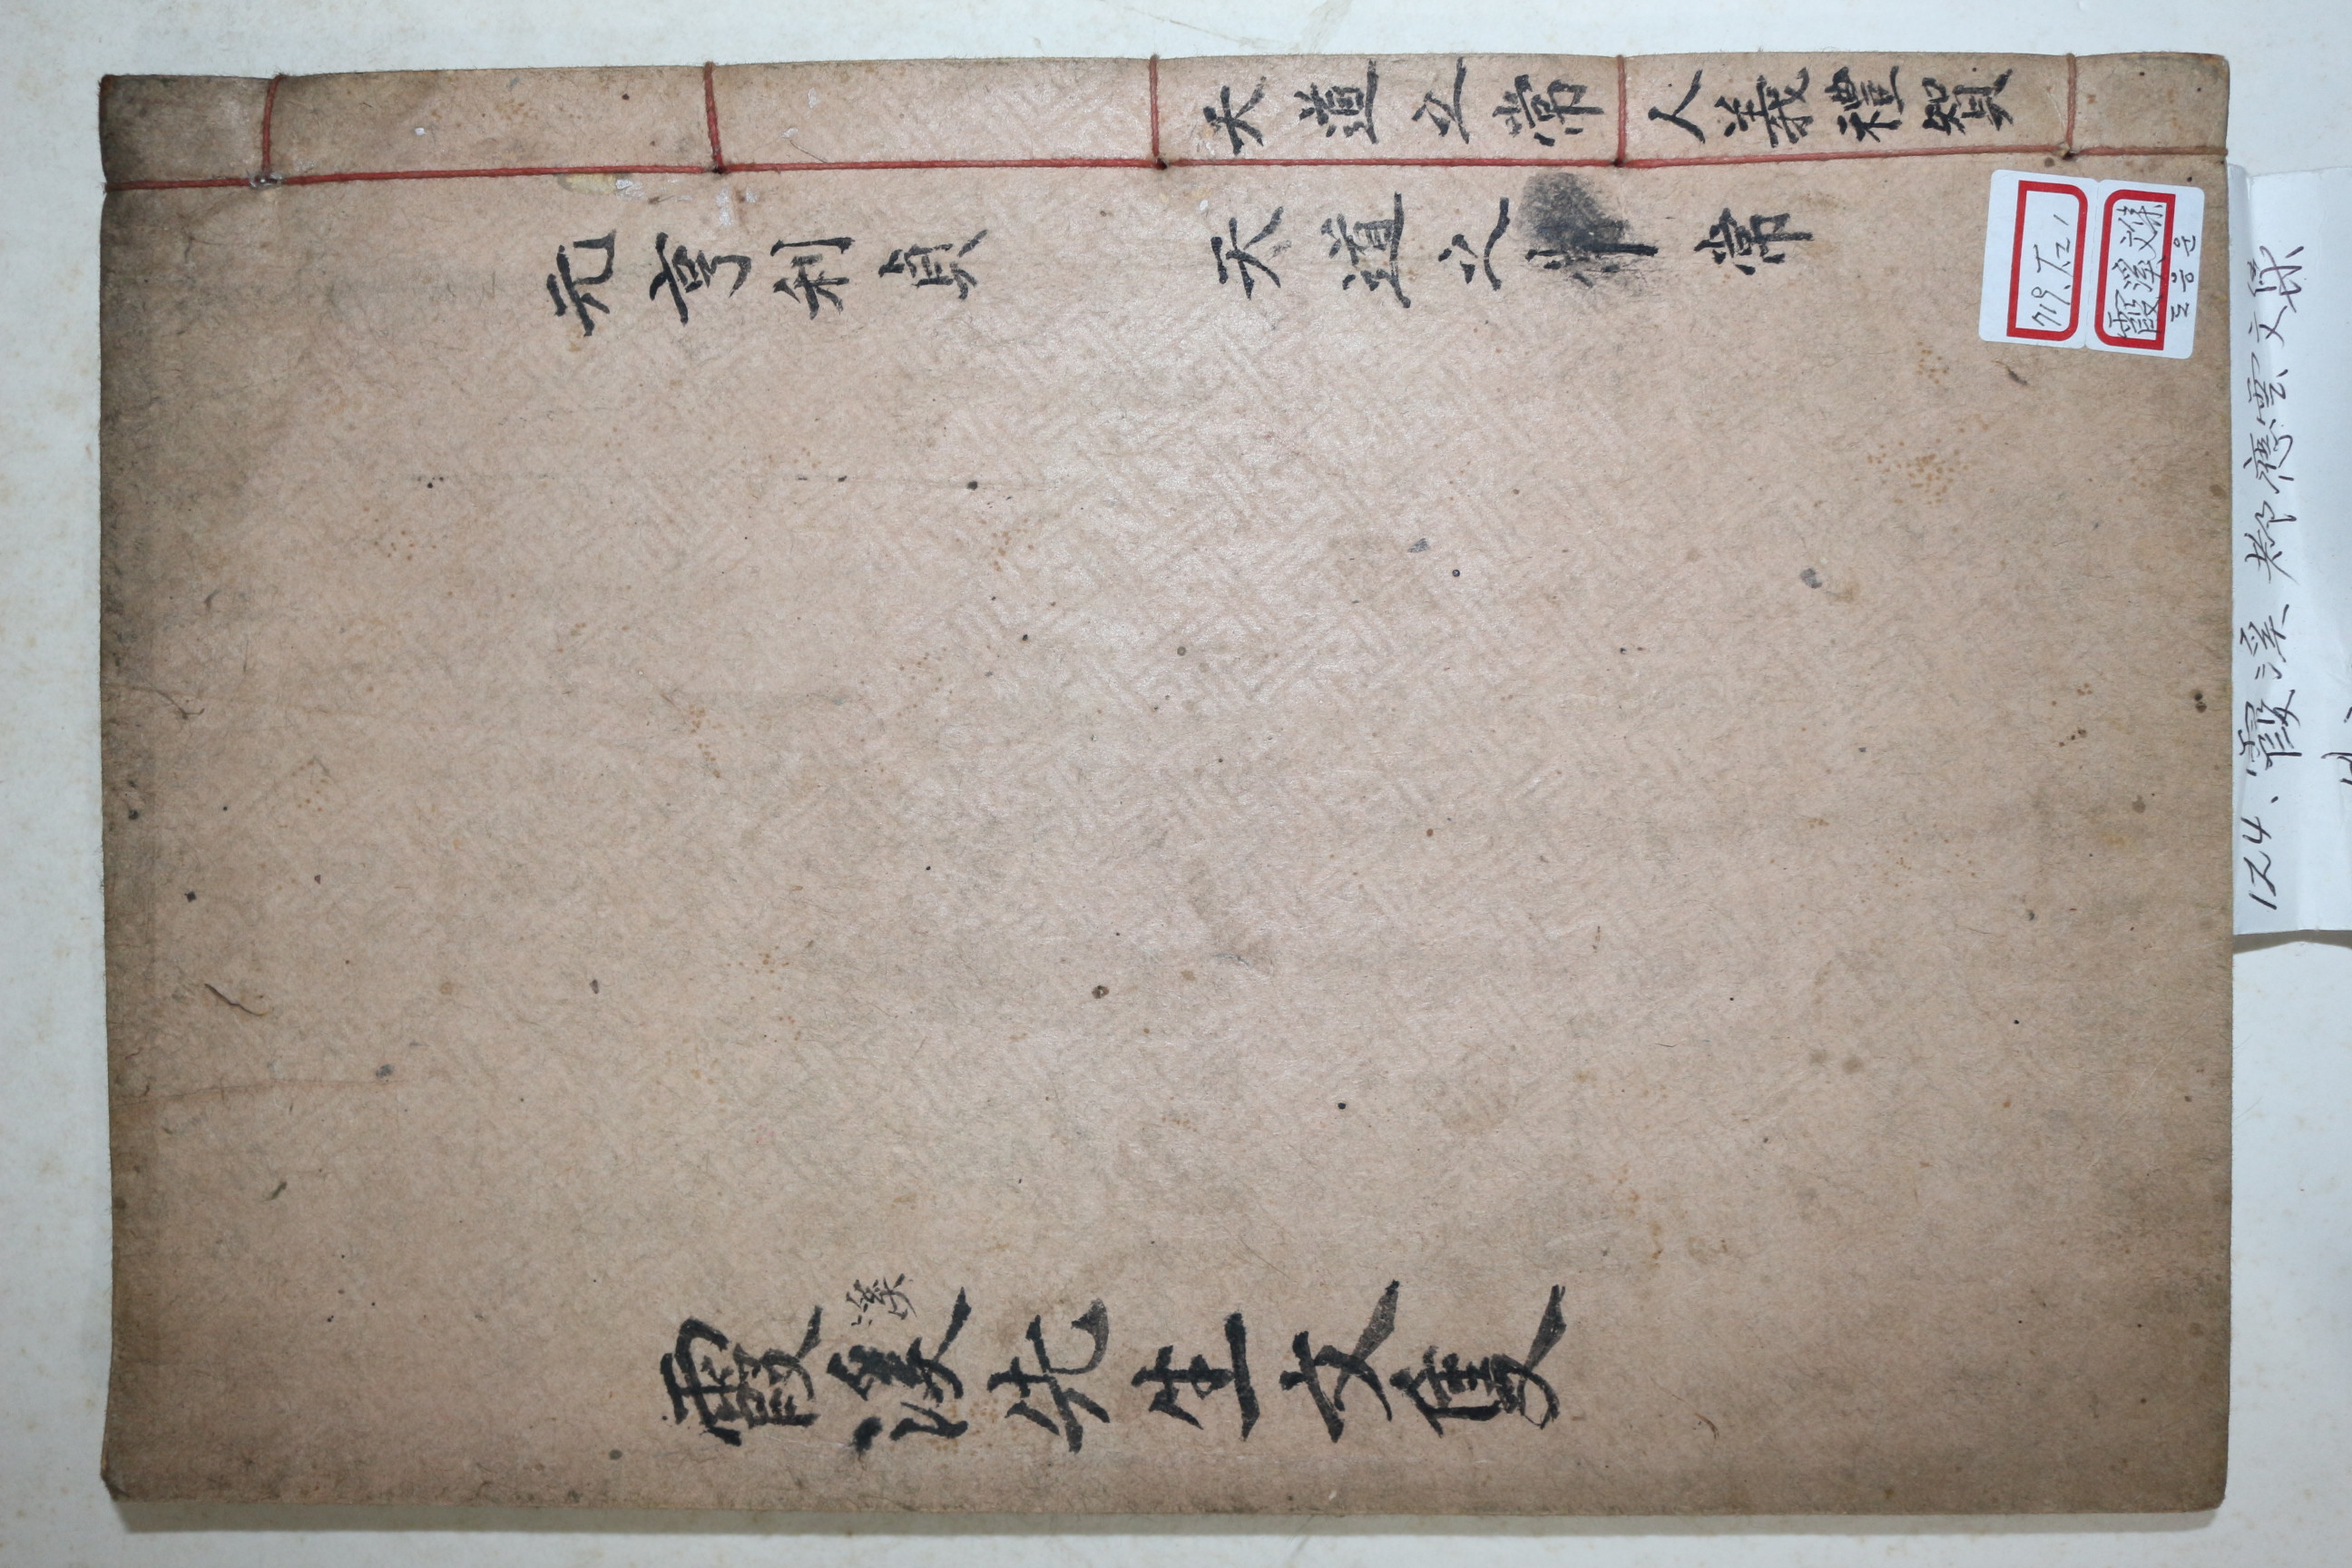 天道之常 人義禮智
元亨利貞 天道之常 常
霞溪先生文隻
溪
719.
霞溪文集
도응운
124. 霞溪 都應雲文集